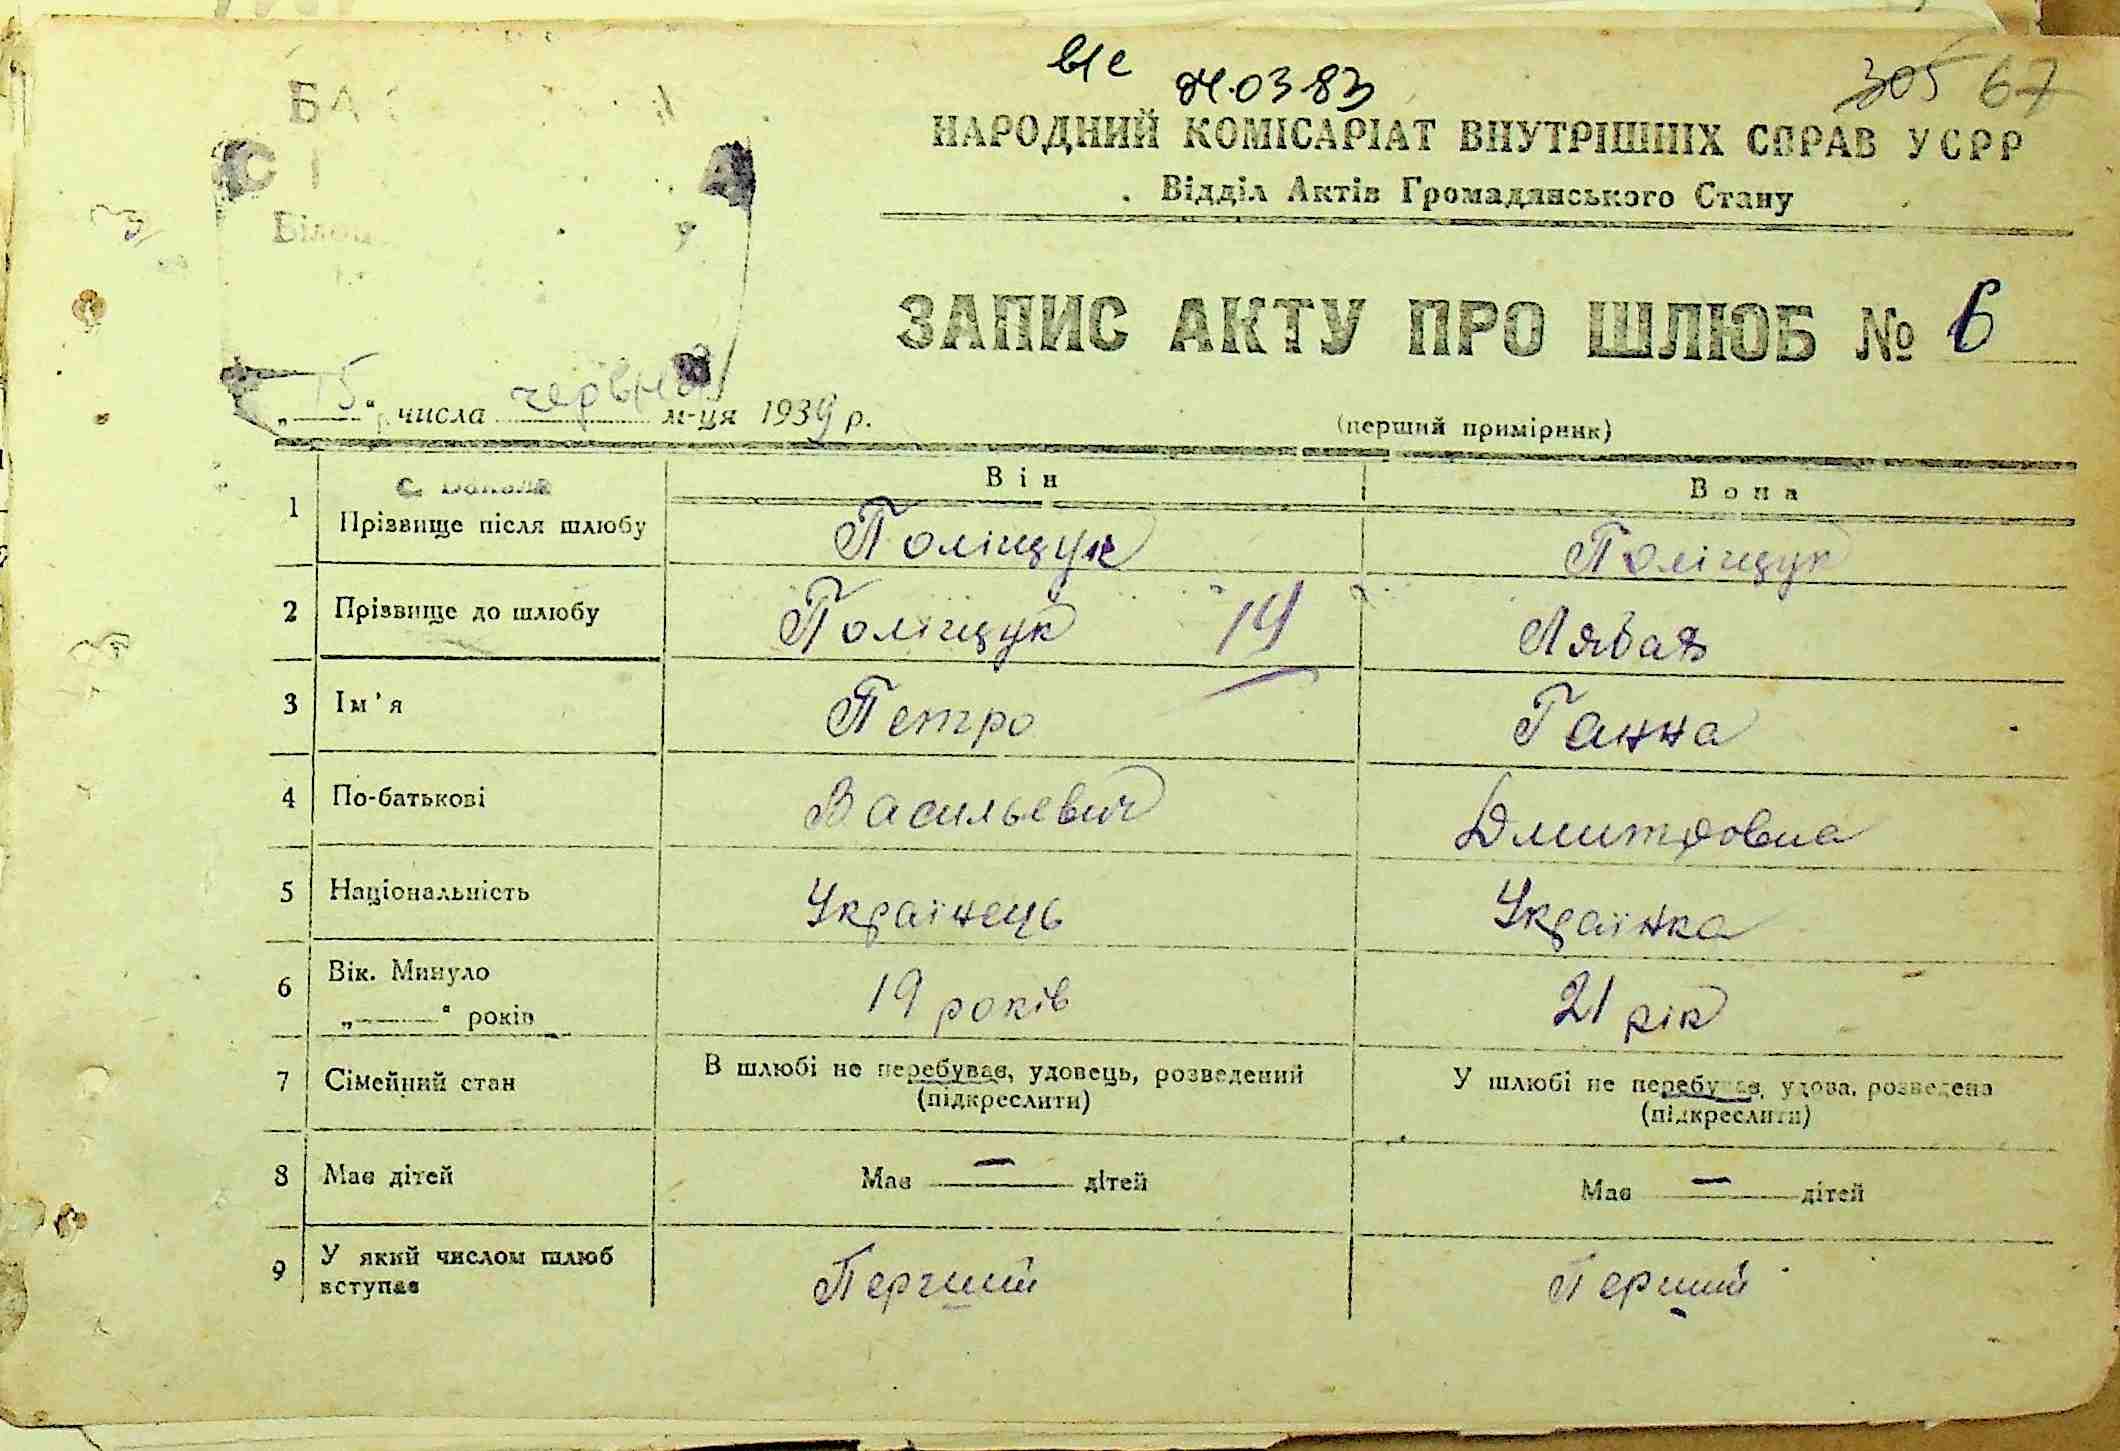 ые
04.03.83
305 67
НАРОДНИЙ КОМІСАРІАТ ВНУТРІШНІХ СПРАВ УСРР
Відділ Актів Громадянського Стану
ЗАПИС АКТУ ПРО ШЛЮБ № 6
„15“ числа червня м-ця 1939 р.
(перший примірник)
Він Вона
1 Прізвище після шлюбу Поліщук Поліщук
2 Прізвище до шлюбу Поліщук 19
3 Ім'я Петро Ганна
4 По-батькові Васильевич Дмитровна
5 Національність Українець Українка
6 Вік. Минуло „——“ років 19 років 21 рік
7 Сімейний стан В шлюбі не перебував, удовець, розведений (підкреслити) У шлюбі не перебував, удова, розведена (підкреслити)
8 Має дітей Має — дітей Має — дітей
9 У який числом шлюб вступає Перший Перший